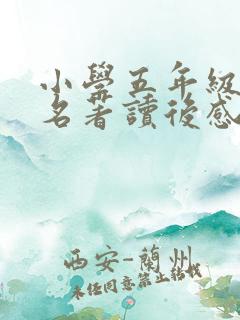 小學五年級
名著讀後感
西安-蘭州
未经同意禁止轉载